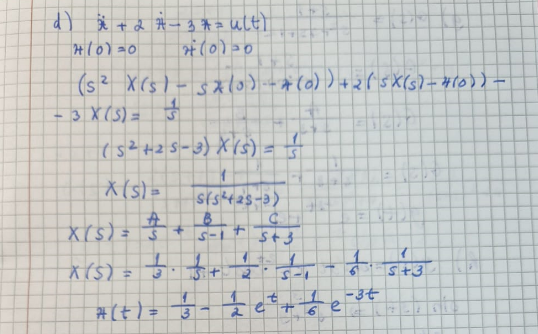 d) ẍ + 2 ẋ - 3 x = u(t)
x(0) = 0 ẋ(0) = 0
(s² X(s) - s x(0) - ẋ(0)) + 2(sX(s) - x(0)) -
- 3 X(s) = 1/s
(s² + 2s - 3) X(s) = 1/s
X(s) = 1/(s(s² + 2s - 3))
X(s) = A/s + B/(s-1) + C/(s+3)
X(s) = 1/3 · 1/s + 1/2 · 1/(s-1) - 1/6 · 1/(s+3)
x(t) = 1/3 - 1/2 e^t + 1/6 e^(-3t)